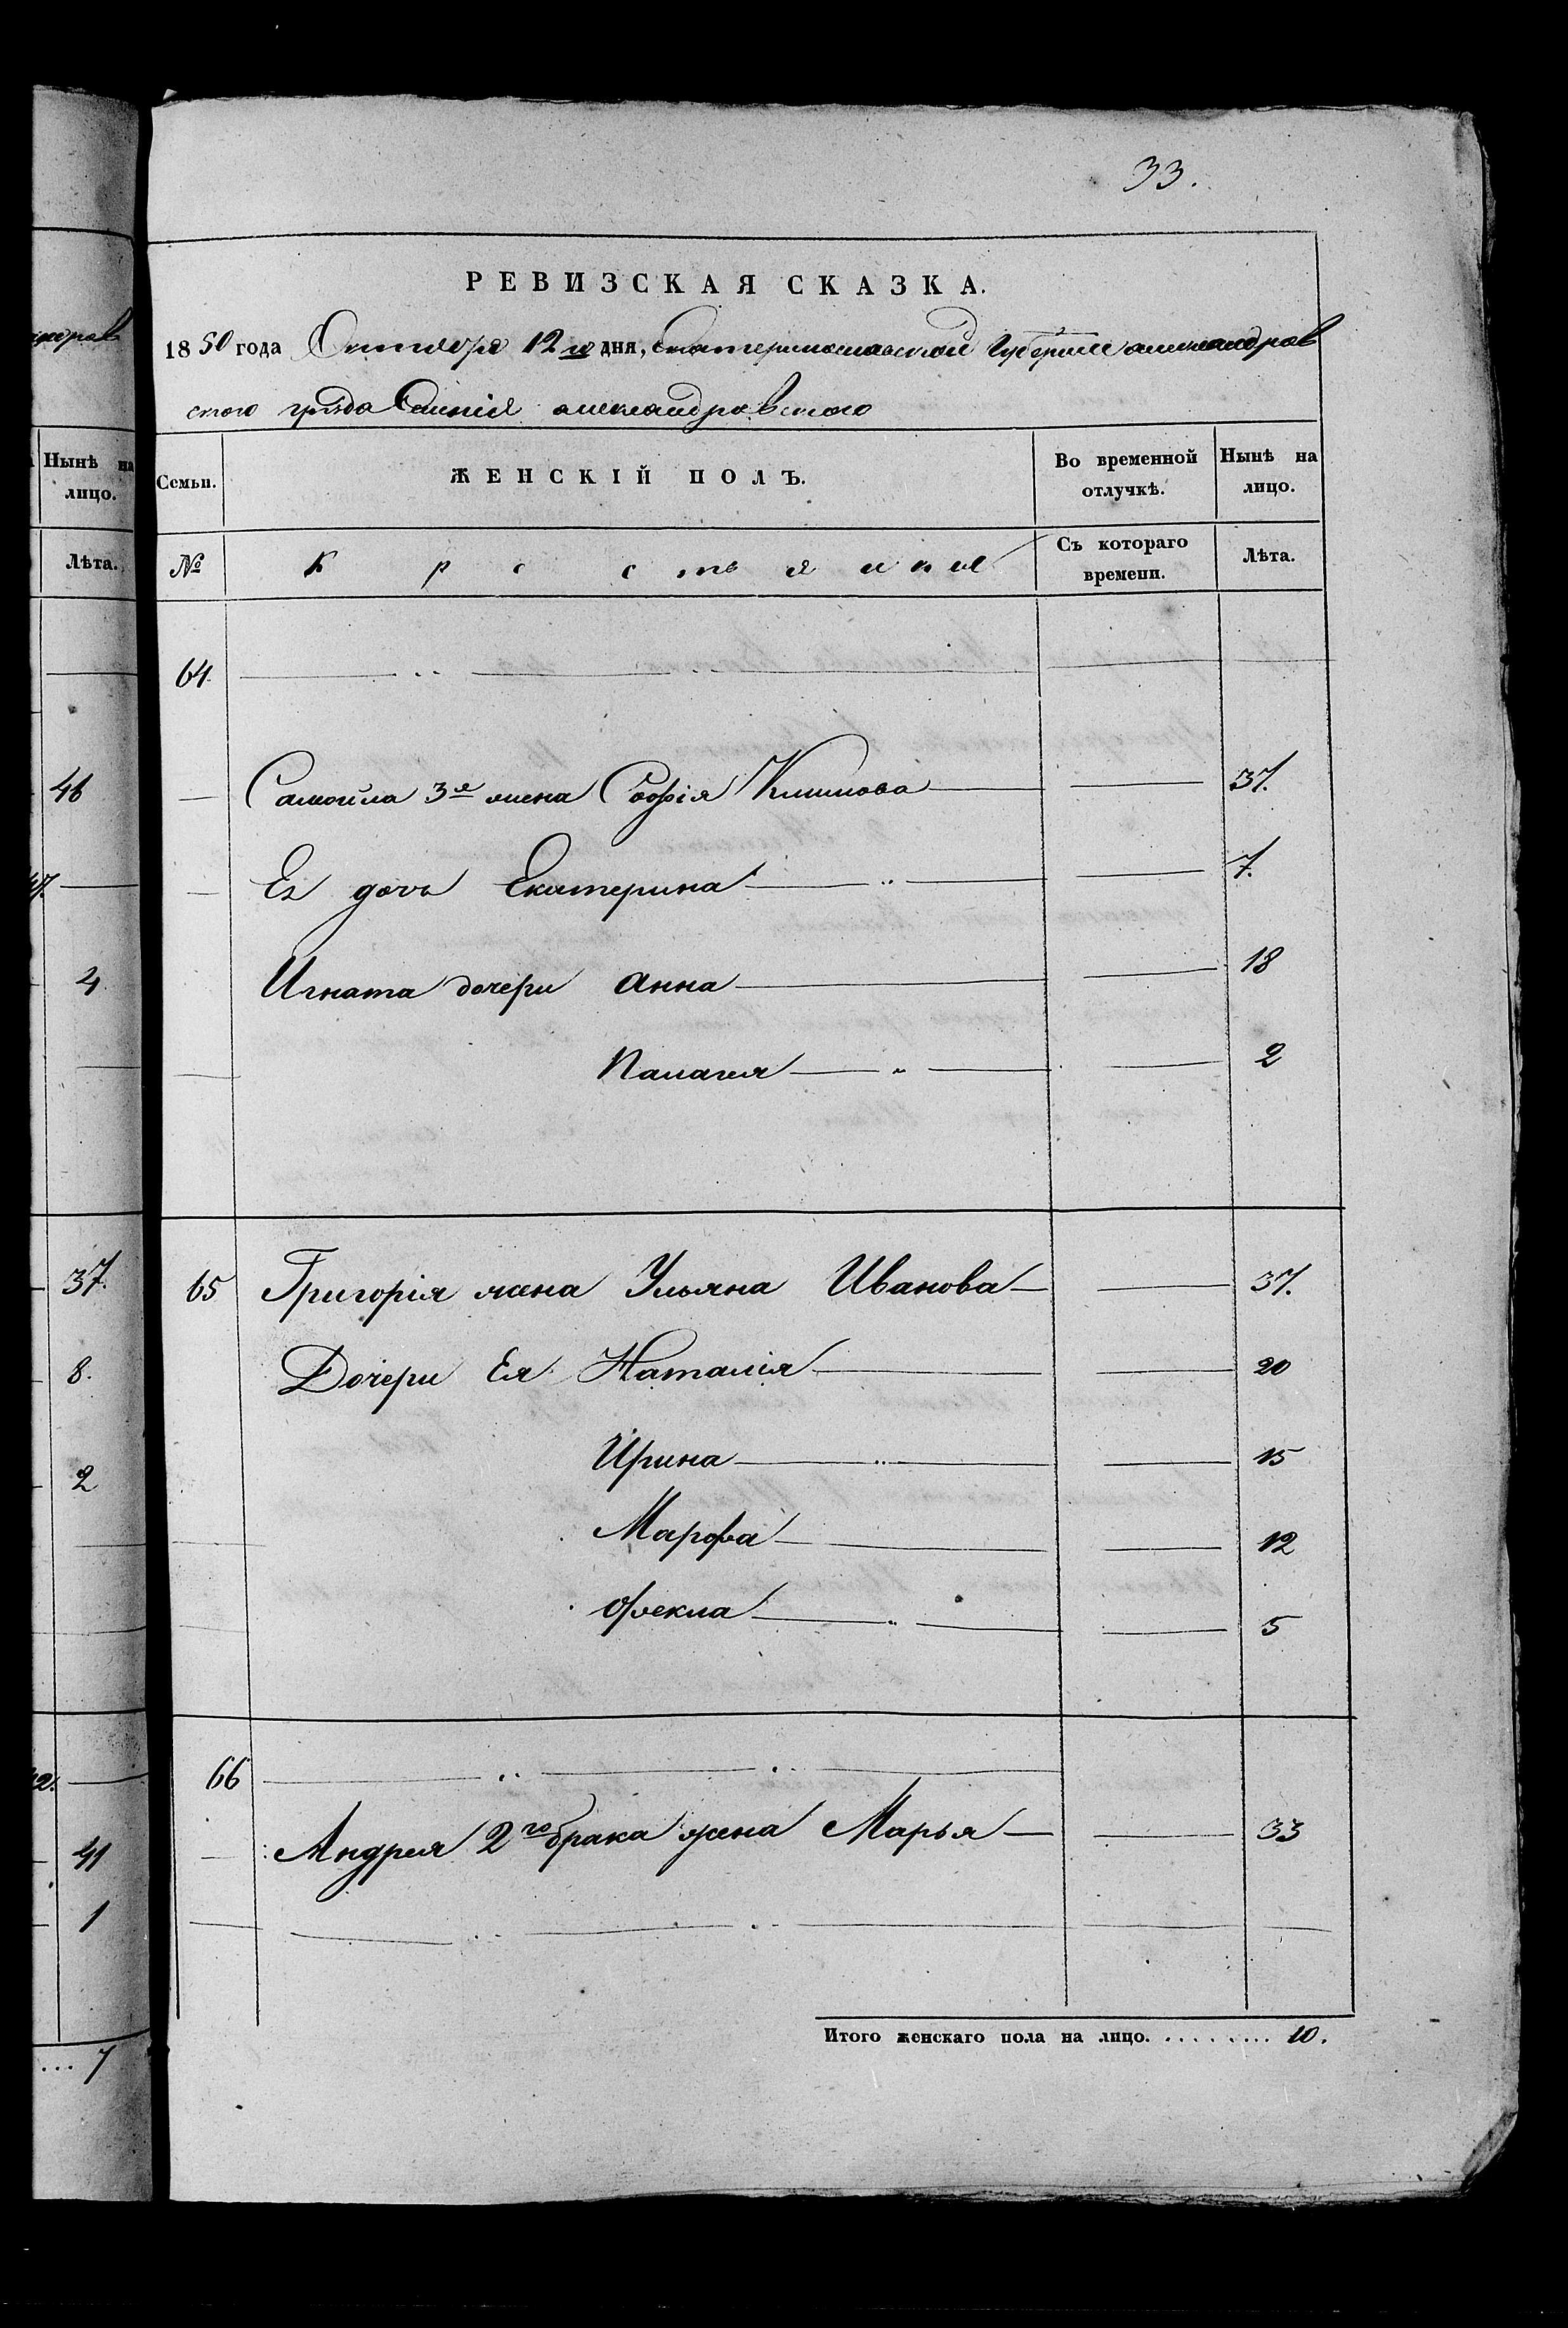 33.
РЕВИЗСКАЯ СКАЗКА.
1850 года Октября 12 го дня, Екатеринославской Губерніи александров
ского уѣзда Селенія александровского
Нынѣ на лицо.
Семьи.
ЖЕНСКІЙ ПОЛЪ.
Во временной отлучкѣ.
Нынѣ на лицо.
Лѣта.
№
Крестьянки
Съ котораго времени.
Лѣта.
64.
46
Самойла 3я жена Софія Климова 37.
47.
Ея дочь Екатерина 7.
4
Игната дочери Анна 18
Палагея 2
37.
65 Григорія жена Ульяна Иванова 37.
8.
Дочери Ея Наталія 20
2
Ирина 15
Марфа 12
Фекла 5
66
41
Андрея 2го брака жена Марья 33
1
... 7
Итого женскаго пола на лицо. ........ 10.